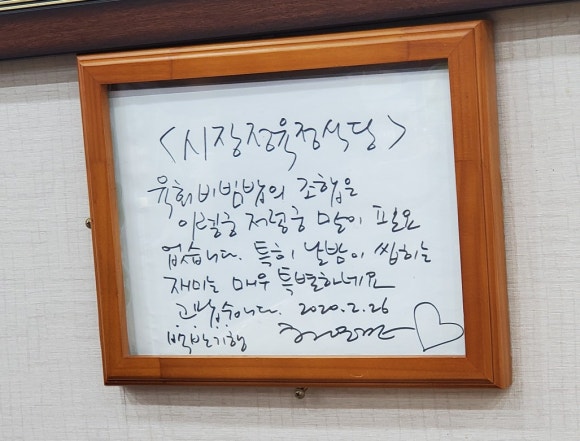 <시장정육정식당>
육회비빔밥의 조합은
이렇쿵 저렇쿵 말이 필요
없습니다. 특히 날밤이 씹히는
재미는 매우 특별하네요
고맙습니다. 2020.2.26
백반기행